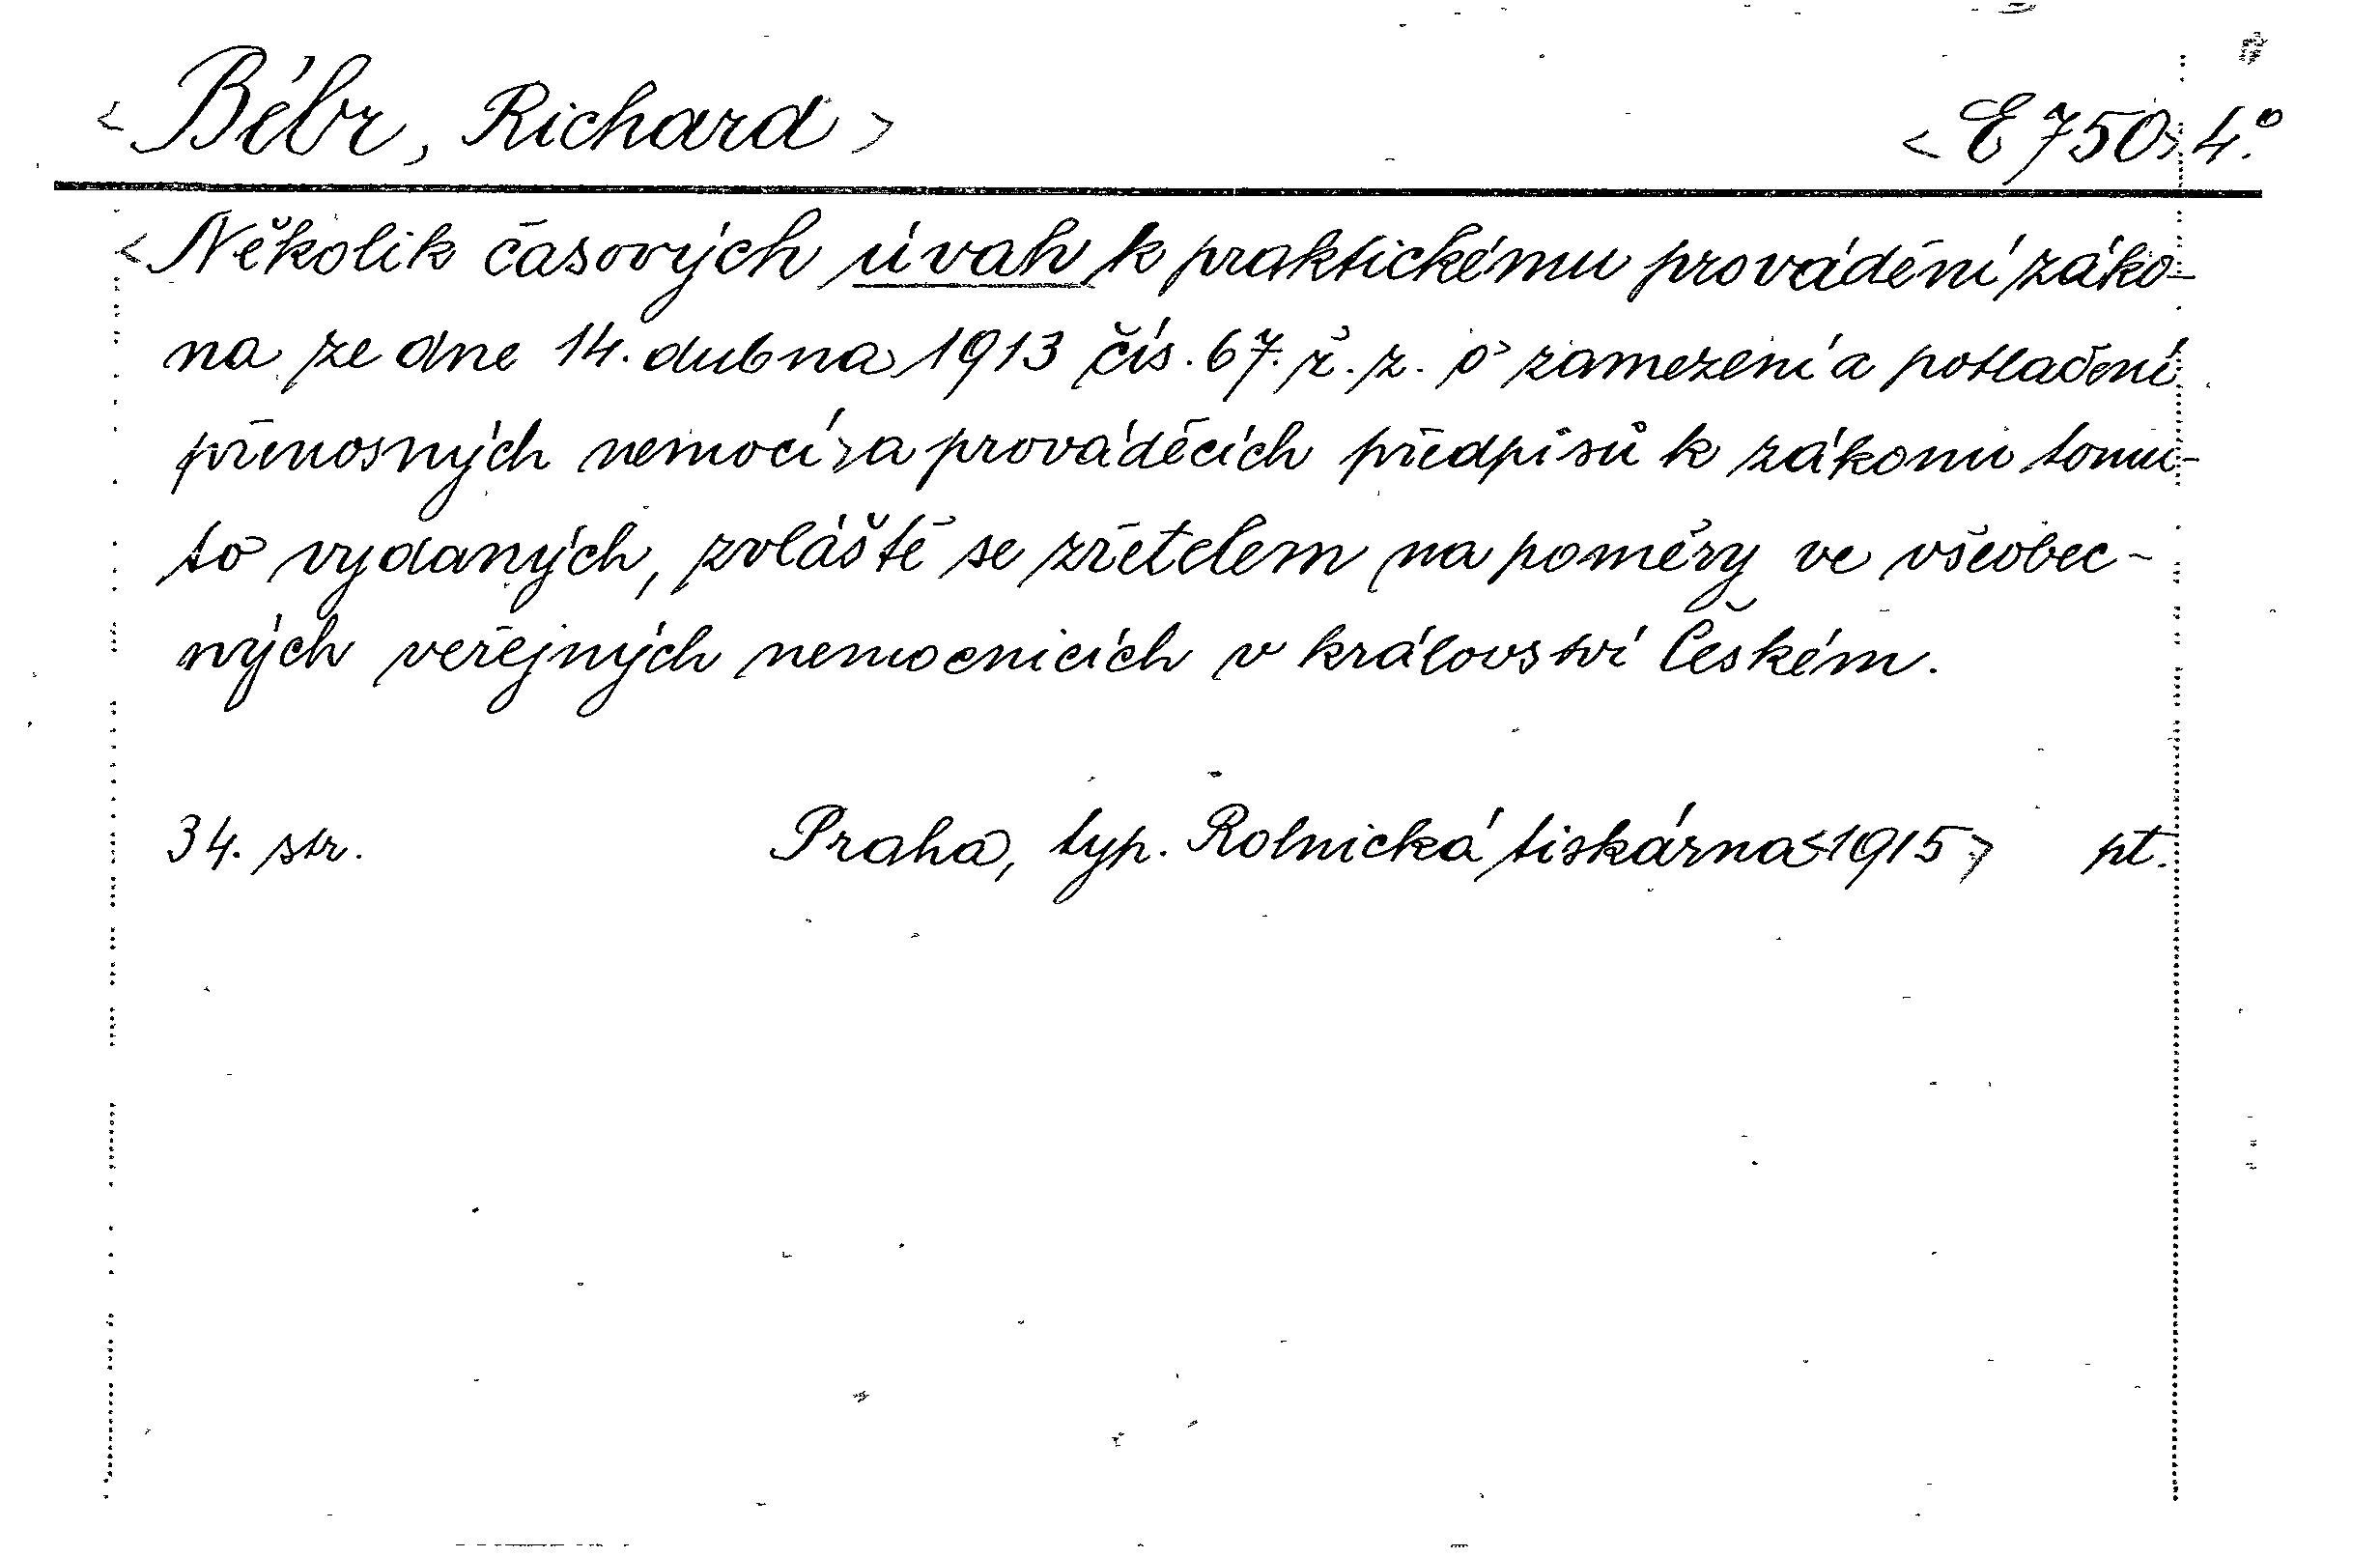 <Bébr, Richard> <E 750> 4.°
<Několik časových úvah k praktickému provádění záko-
na ze dne 14. dubna 1913 čís. 67. ř. z. o zamezení a potlačení
přenosných nemocí> a prováděcích předpisů k zákonu tomu-
to vydaných, zvláště se zřetelem na poměry ve všeobec-
ných veřejných nemocnicích v království Českém.
34. str. Praha, typ. Rolnická tiskárna <1915> pt.